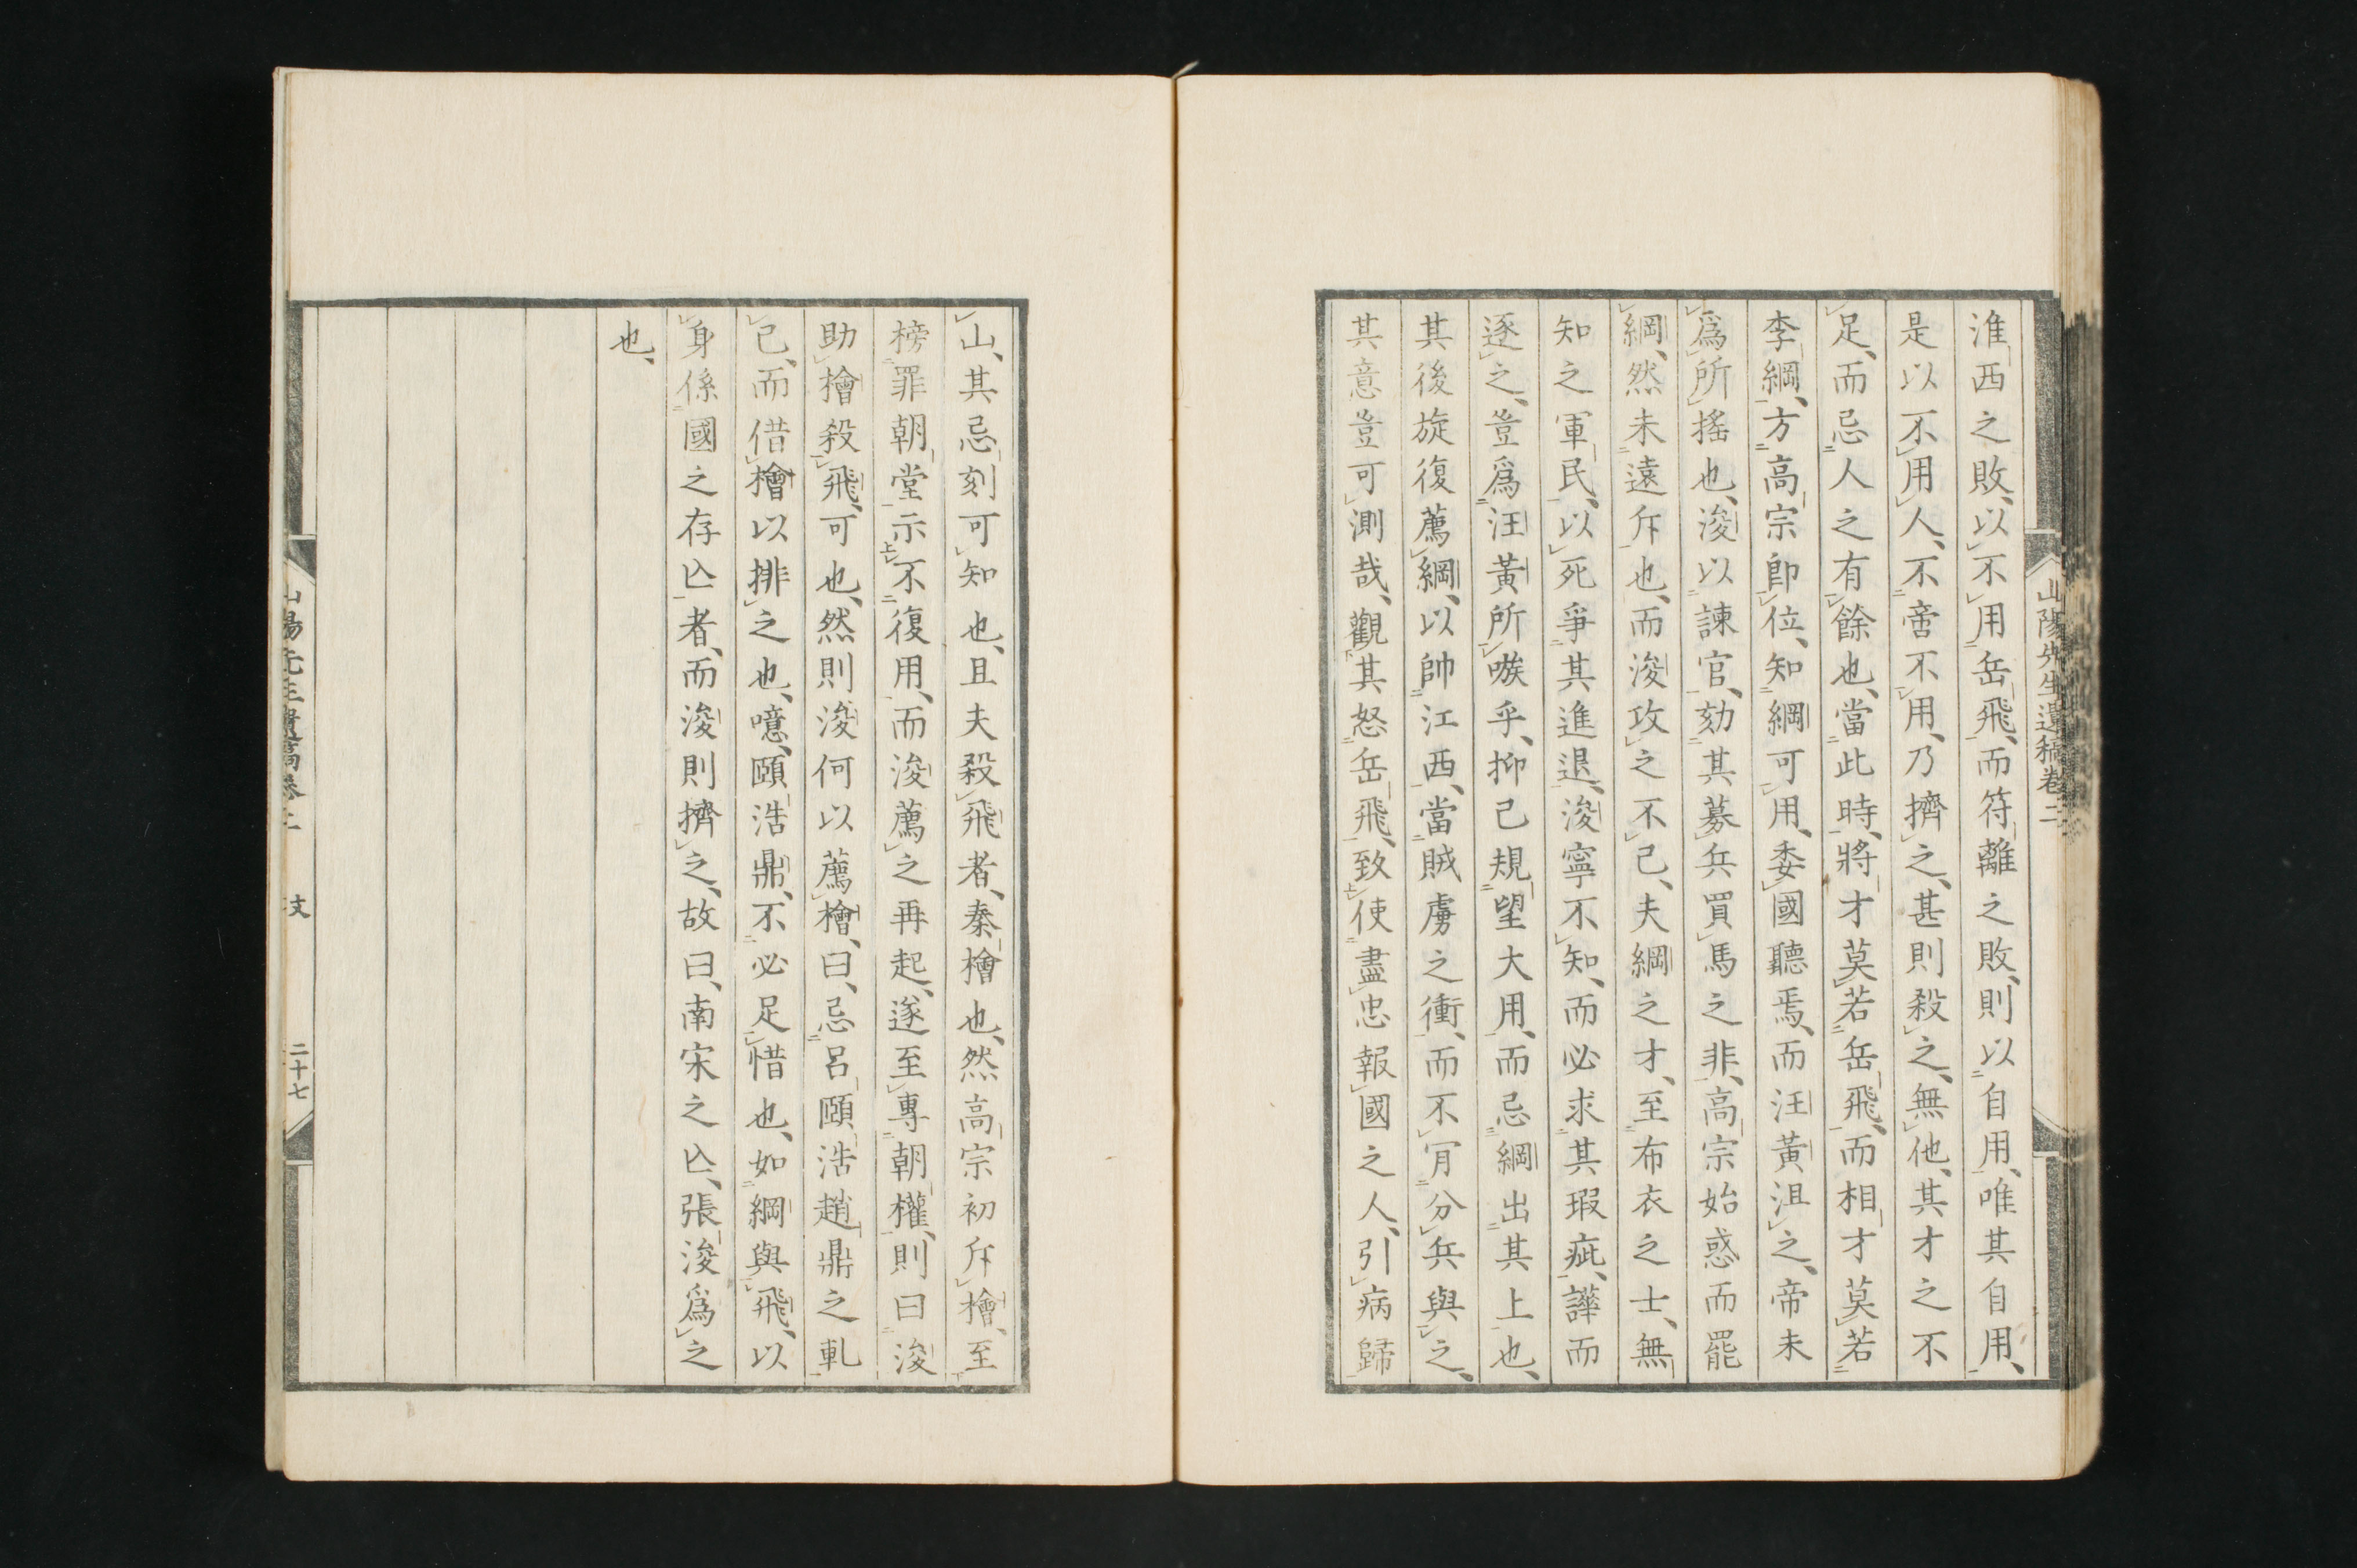 山陽先生遺稿卷二
淮西之敗、以不用岳飛、而符離之敗、則以自用、唯其自用、
是以不用人、不啻不用、乃擠之、甚則殺之、無他、其才之不
足、而忌人之有餘也、當此時、將才莫若岳飛、而相才莫若
李綱、方高宗卽位、知綱可用、委國聽焉、而汪黃沮之、帝未
爲所搖也、浚以諫官、劾其募兵買馬之非、高宗始惑而罷
綱、然未遠斥也、而浚攻之不已、夫綱之才、至布衣之士、無
知之軍民、以死爭其進退、浚寧不知、而必求其瑕疵、譁而
逐之、豈爲汪黃所嗾乎、抑己規望大用、而忌綱出其上也、
其後旋復薦綱、以帥江西、當賊虜之衝、而不肎分兵與之、
其意豈可測哉、觀其怒岳飛、致使盡忠報國之人、引病歸
山、其忌刻可知也、且夫殺飛者、秦檜也、然高宗初斥檜、至
榜罪朝堂示不復用、而浚薦之再起、遂至專朝權、則曰浚
助檜殺飛、可也、然則浚何以薦檜、曰、忌呂頤浩趙鼎之軋
已、而借檜以排之也、噫、頤浩鼎、不必足惜也、如綱與飛、以
身係國之存亾者、而浚則擠之、故曰、南宋之亾、張浚爲之
也、
山陽先生遺稿卷二 文 二十七